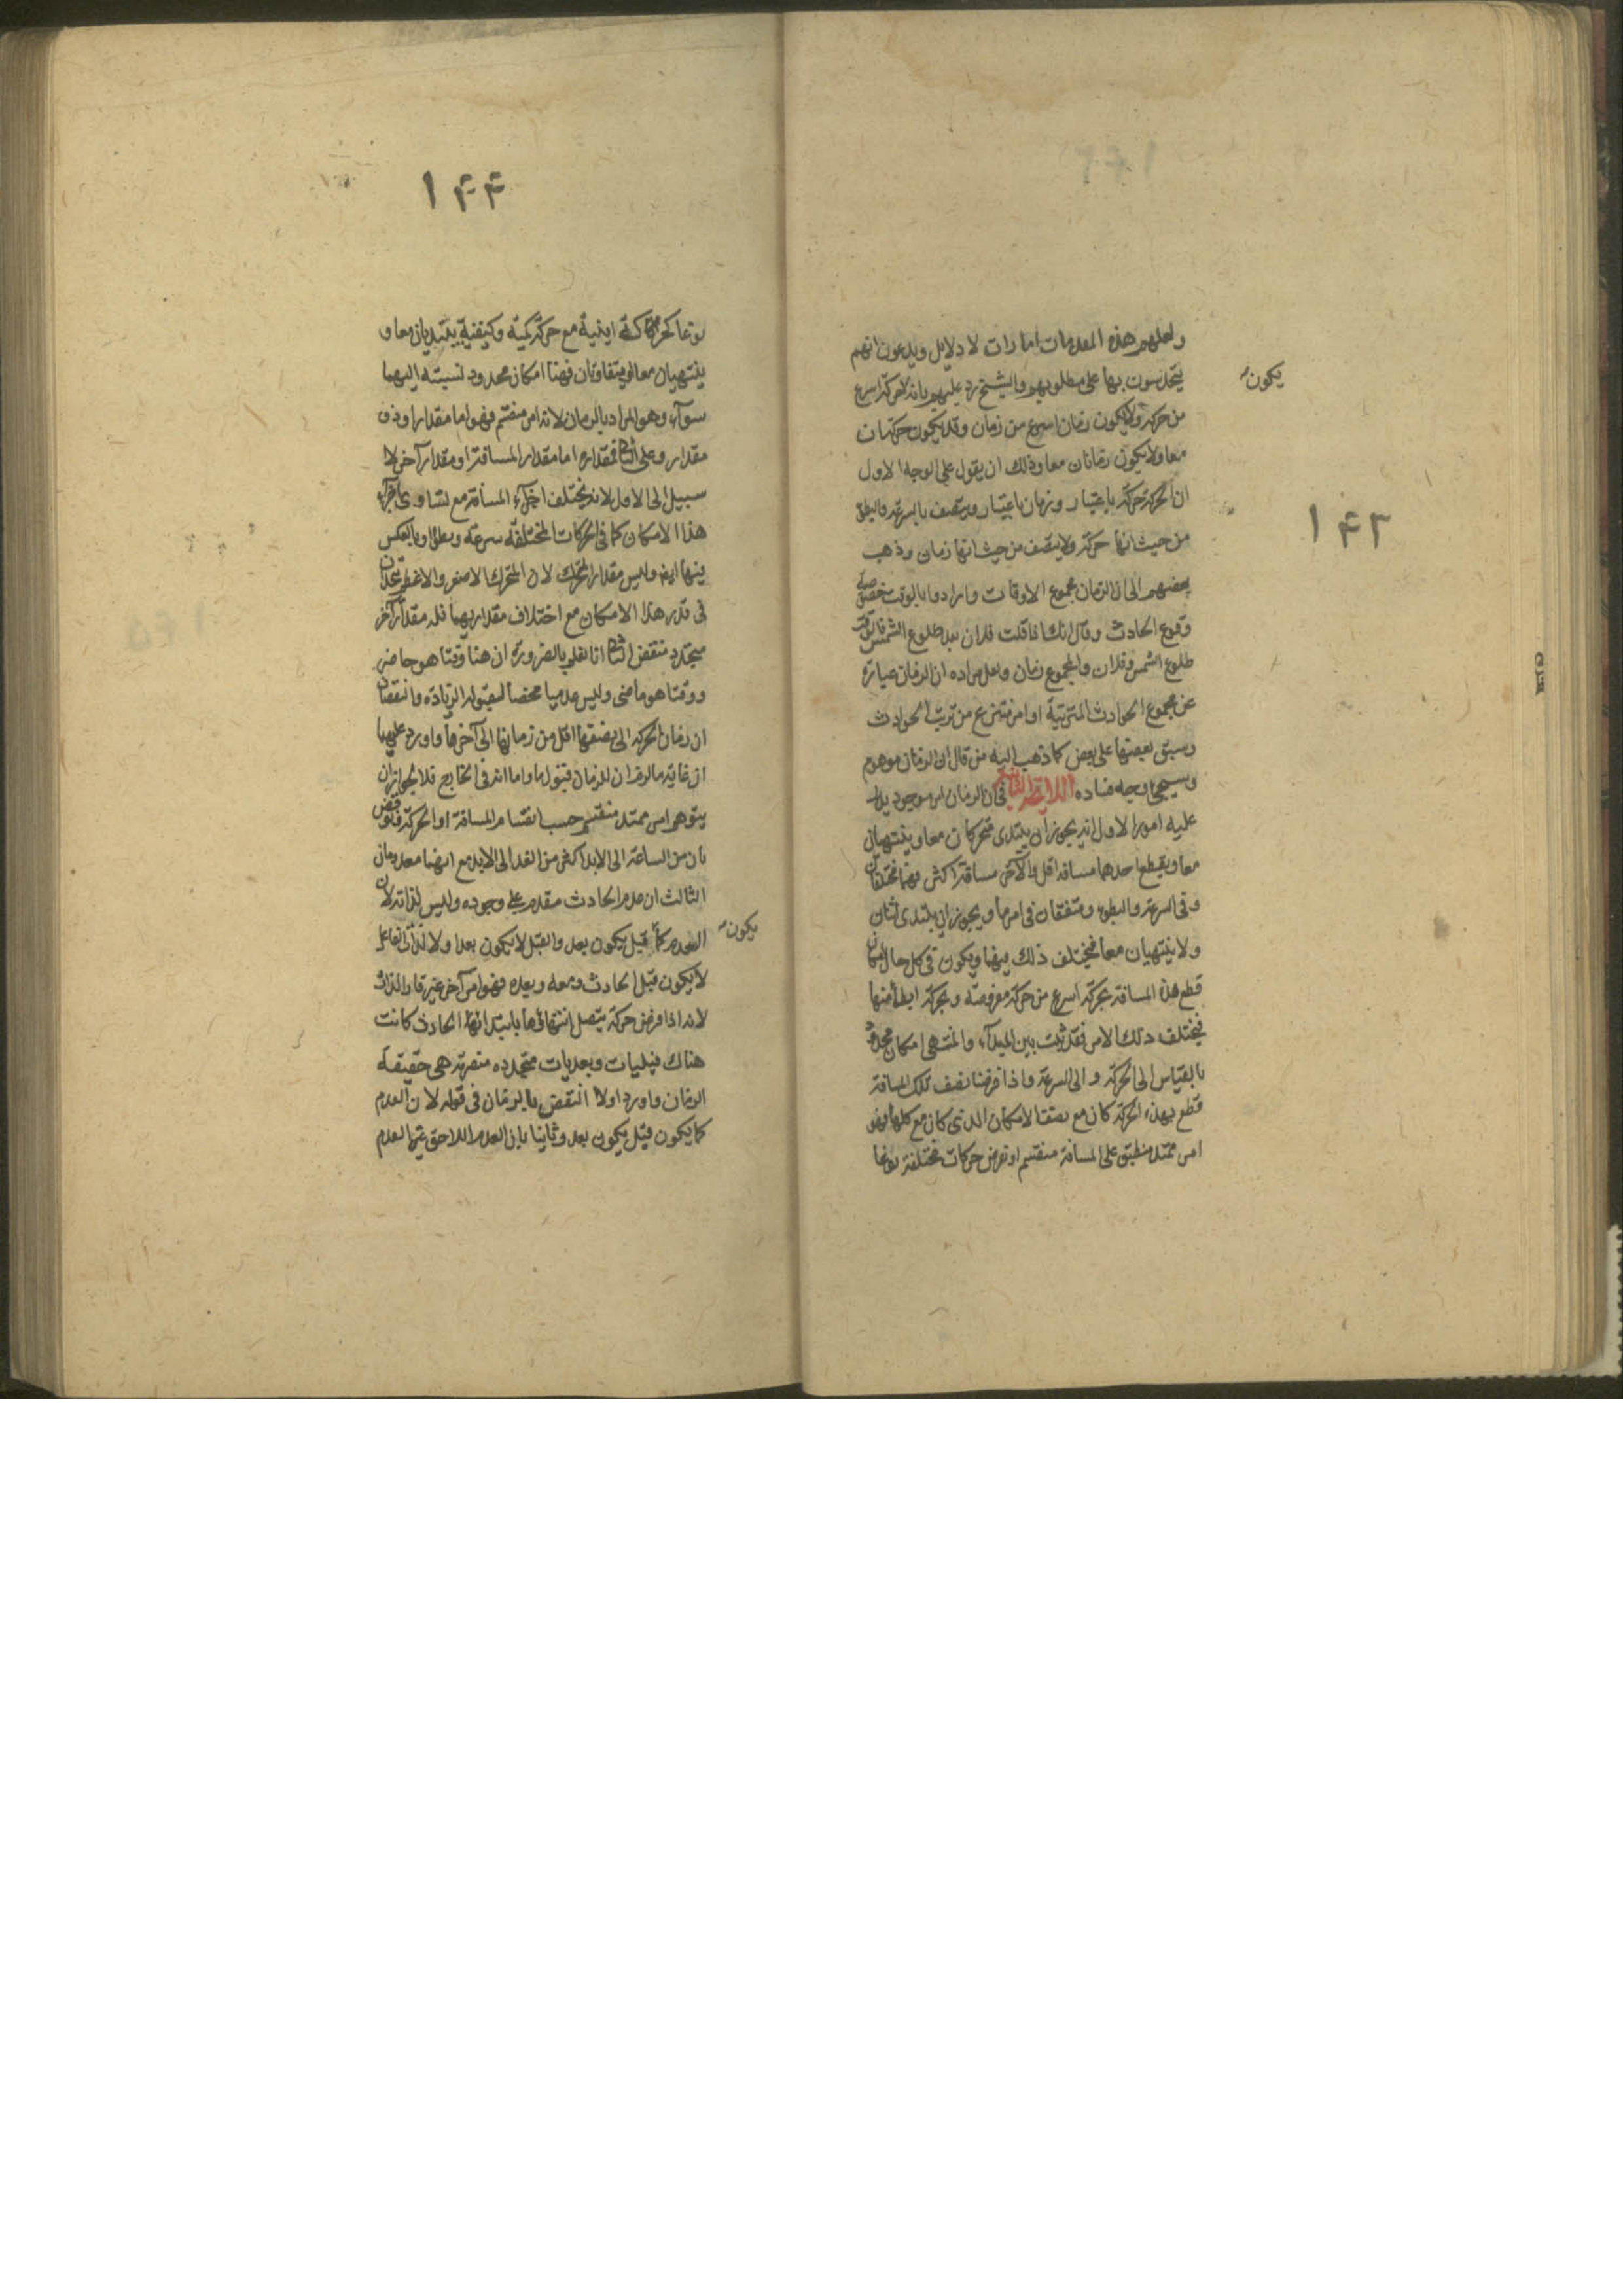 ولعلهم هذه المقدمات امارات لا دلايل ويدعون انهم
يتحدسون بها على مطلوبهم والشيخ رد عليهم بانه لحركة اسرع
يكون
من حركة ولا يكون زمان اسرع من زمان وقد يكون حركتان
معا ولا يكون زمانان معا وذلك ان يقول على الوجه الاول
ان الحركة حركة باعتبار وزمان باعتبار ويتصف بالسرعة والبطؤ
١٤٣
من حيث انها حركة ولا يتصف من حيث انها زمان وذهب
بعضهم الى ان الزمان مجموع الاوقات وارادوا بالوقت
وقوع الحادث وقال انك اذا قلت فلان بعد طلوع الشمس
طلوع الشمس وفلان والمجموع زمان ولعل مراده ان الزمان عبارة
عن مجموع الحوادث المترتبة او امر منتزع من ترتب الحوادث
وسبق بعضها على بعض كما ذهب اليه من قال ان الزمان موهوم
وسيجئ وجه فساده في ان الزمان امر موجود يدل
عليه امور الاول انه يجوز ان يبتدى متحركان معا وينتهيان
معا ويقطع احدهما مسافة اقل والآخر مسافة اكثر فهما مختلفان
وفى السرعة والبطؤ ومتفقان في امر ما ويجوز ان يبتدى اثنان
ولا ينتهيان معا فيختلف ذلك فيهما ويكون في كل حال امكان
قطع هذه المسافة بحركة اسرع من حركة مفروضة وبحركة ابطأ منها
فيختلف ذلك الامر فقد ثبت بين المبدأ والمنتهى امكان محدود
بالقياس الى الحركة والى السرعة واذا فرضنا نصف تلك المسافة
قطع بهذه الحركة كان مع نصفها الامكان الذى كان مع كلها فهو
امر ممتد منطبق على المسافة منقسم او نفرض حركات مختلفة نوعا
١٤٤
نوعا كحركة اينية مع حركة كمية وكيفية يبتديان معا و
ينتهيان معا او متفاوتان فههنا امكان محدود نسبته اليهما
سوآء وهو المراد بالزمان لانه امر منقسم فهو اما مقدار او ذو
مقدار وعلى الثاني فمقداره اما مقدار المسافة او مقدار آخر لا
سبيل الى الاول لانه يختلف اجزآء المسافة مع تساوى اجزآء
هذا الامكان كما في الحركات المختلفة سرعة وبطؤا وبالعكس
فيها ايضا وليس مقدار المتحرك لان المتحرك الاصغر والاعظم يتحدان
في قدر هذا الامكان مع اختلاف مقداريهما فله مقدار آخر
متجدد منقض الثاني انا نعلم بالضرورة ان هنا وقتا هو حاضر
ووقتا هو ماضى وليس عدميا محضا لقبوله الزيادة والنقصان
ان زمان الحركة الى نصفها اقل من زمانها الى آخرها واورد عليهما
ان غاية مالزم ان للزمان قبول ما واما انه في الخارج فلا يجوز ان
يتوهم امر ممتد منقسم حسب انقسام المسافة او الحركة فنوقض
بان من الساعة الى الابد اكثر من الغد الى الابد مع انهما معدومان
الثالث ان عدم الحادث مقدم على وجوده وليس لذاته لان
يكون
العدم كما قبل يكون بعد والقبل لا يكون بعدا ولا لذات الفاعل
لا يكون قبل الحادث ومعه وبعده فهو امر آخر غير قار الذات
لانه اذا فرض حركة يتصل انتهائها بابتداء الحادث كانت
هناك قبليات وبعديات متجدده متصرمة هى حقيقة
الزمان واورد اولا النقض بالزمان في قوله لان العدم
كما يكون قبل يكون بعد وثانيا بان العدم اللاحق غير العدم